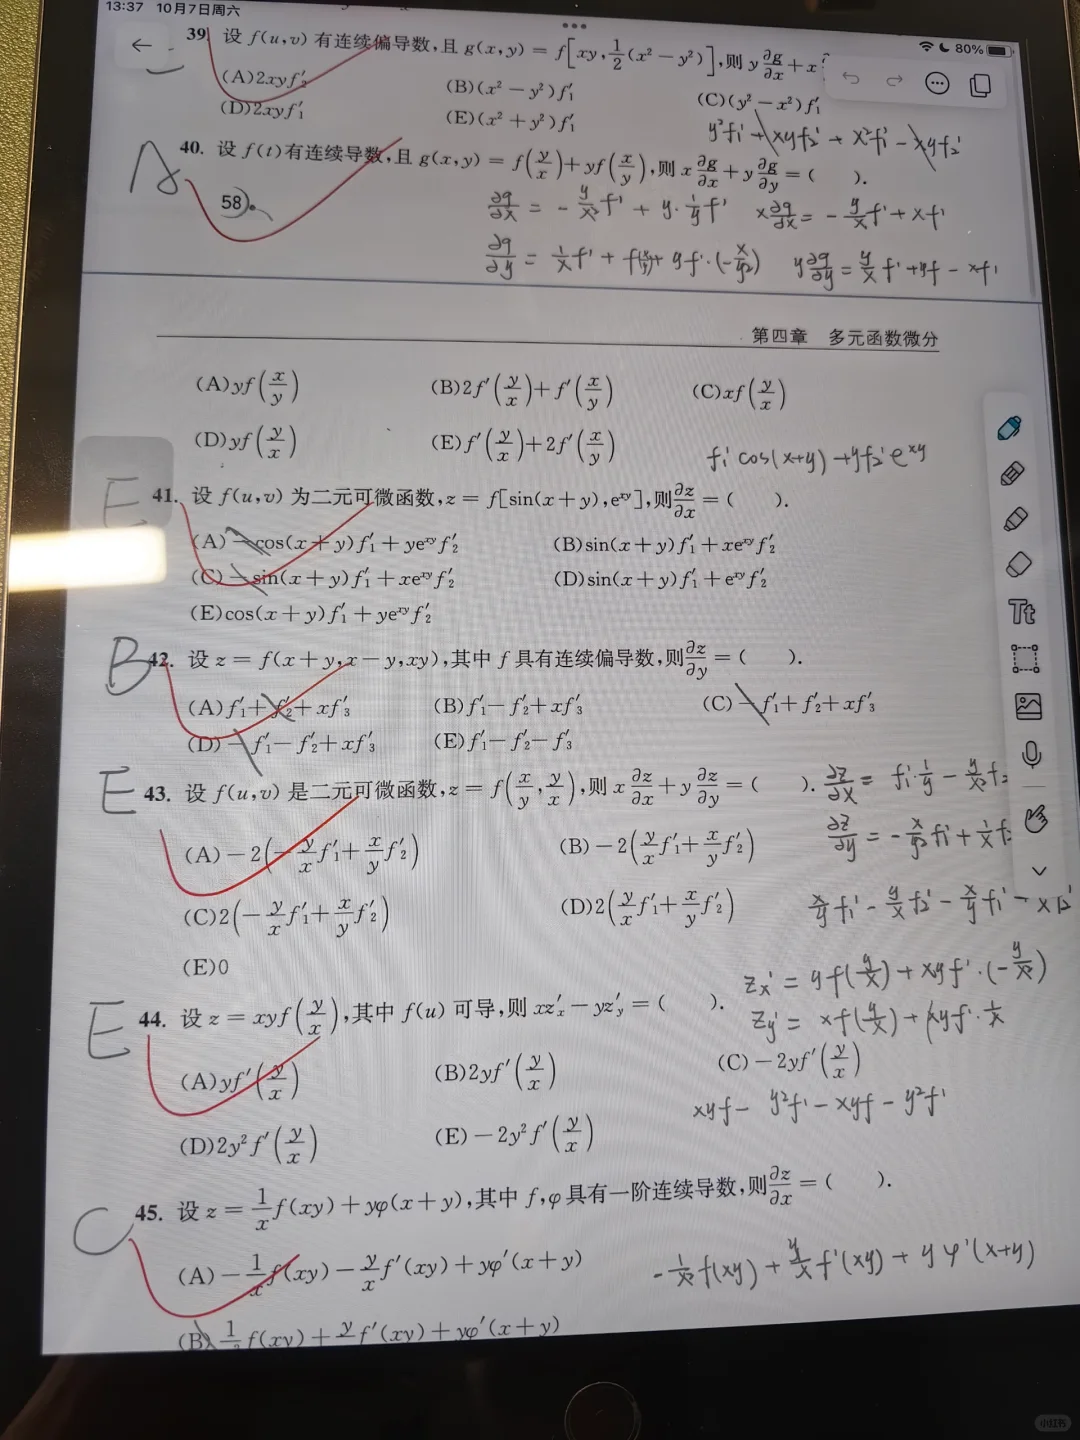 13:37 10月7日周六
80%
39. 设 f(u,v) 有连续偏导数,且 g(x,y) = f[xy, 1/2(x² − y²)],则 y ∂g/∂x + x
(A)2xyf′₂ (B)(x² − y²)f′₁ (C)(y² − x²)f′₁
(D)2xyf′₁ (E)(x² + y²)f′₁
y²f₁' + xyf₂' + x²f₁' − xyf₂'
A
40. 设 f(t)有连续导数,且 g(x,y) = f(y/x) + yf(x/y),则 x ∂g/∂x + y ∂g/∂y = ( ).
58
∂g/∂x = − y/x² f' + y · 1/y f' x ∂g/∂x = − y/x f' + xf'
∂g/∂y = 1/x f' + f(x/y) + yf' · (− x/y²) y ∂g/∂y = y/x f' + yf − xf'
第四章 多元函数微分
(A)yf(x/y) (B)2f′(y/x) + f′(x/y) (C)xf(y/x)
(D)yf(y/x) (E)f′(y/x) + 2f′(x/y)
f₁' cos(x+y) + yf₂' e^xy
E
41. 设 f(u,v) 为二元可微函数,z = f[sin(x + y), e^xy],则 ∂z/∂x = ( ).
(A) − cos(x + y)f′₁ + ye^xy f′₂ (B)sin(x + y)f′₁ + xe^xy f′₂
(C) − sin(x + y)f′₁ + xe^xy f′₂ (D)sin(x + y)f′₁ + e^xy f′₂
(E)cos(x + y)f′₁ + ye^xy f′₂
B
42. 设 z = f(x + y, x − y, xy),其中 f 具有连续偏导数,则 ∂z/∂y = ( ).
(A)f′₁ + f′₂ + xf′₃ (B)f′₁ − f′₂ + xf′₃ (C) − f′₁ + f′₂ + xf′₃
(D) − f′₁ − f′₂ + xf′₃ (E)f′₁ − f′₂ − f′₃
E
43. 设 f(u,v) 是二元可微函数,z = f(x/y, y/x),则 x ∂z/∂x + y ∂z/∂y = ( ).
∂z/∂x = f₁' · 1/y − y/x² f₂
∂z/∂y = − x/y² f₁' + 1/x f₂
(A) − 2(− y/x f′₁ + x/y f′₂) (B) − 2(y/x f′₁ + x/y f′₂)
(C)2(− y/x f′₁ + x/y f′₂) (D)2(y/x f′₁ + x/y f′₂)
x/y f₁' − y/x f₂' − x/y f₁' −
(E)0
zx' = yf(y/x) + xyf' · (− y/x²)
E
44. 设 z = xyf(y/x),其中 f(u) 可导,则 xz′ₓ − yz′ᵧ = ( ).
zy' = xf(y/x) + xyf' · 1/x
(A)yf′(y/x) (B)2yf′(y/x) (C) − 2yf′(y/x)
xyf − y²f' − xyf − y²f'
(D)2y²f′(y/x) (E) − 2y²f′(y/x)
C
45. 设 z = 1/x f(xy) + yφ(x + y),其中 f,φ 具有一阶连续导数,则 ∂z/∂x = ( ).
(A) − 1/x f(xy) − y/x f′(xy) + yφ′(x + y)
− 1/x² f(xy) + y/x f'(xy) + yφ'(x+y)
(B) f(xy) + y/x f′(xy) + yφ′(x + y)
小红书